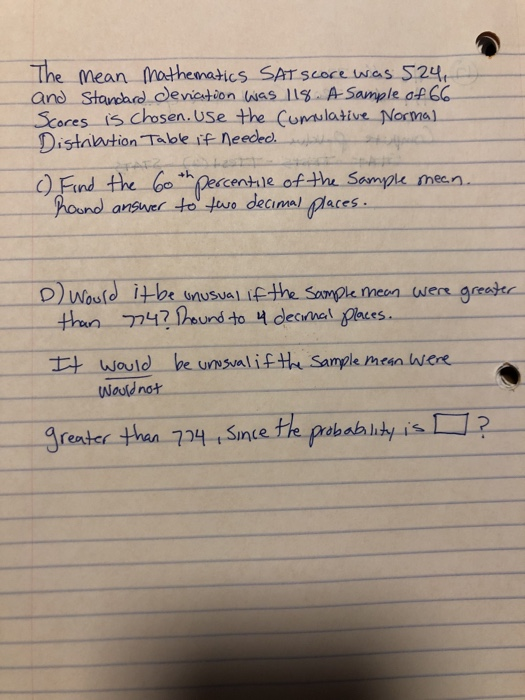 The Mean Mathematics SAT score was 524,
and Standard deviation was 118. A Sample of 66
Scores is chosen. Use the Cumulative Normal
Distribution Table if Needed.
C) Find the 60th percentile of the Sample mean.
Round answer to two decimal places.
D) Would it be unusual if the sample mean were greater
than 774? Round to 4 decimal places.
It would be unusual if the sample mean were
would not
greater than 774, since the probability is □?